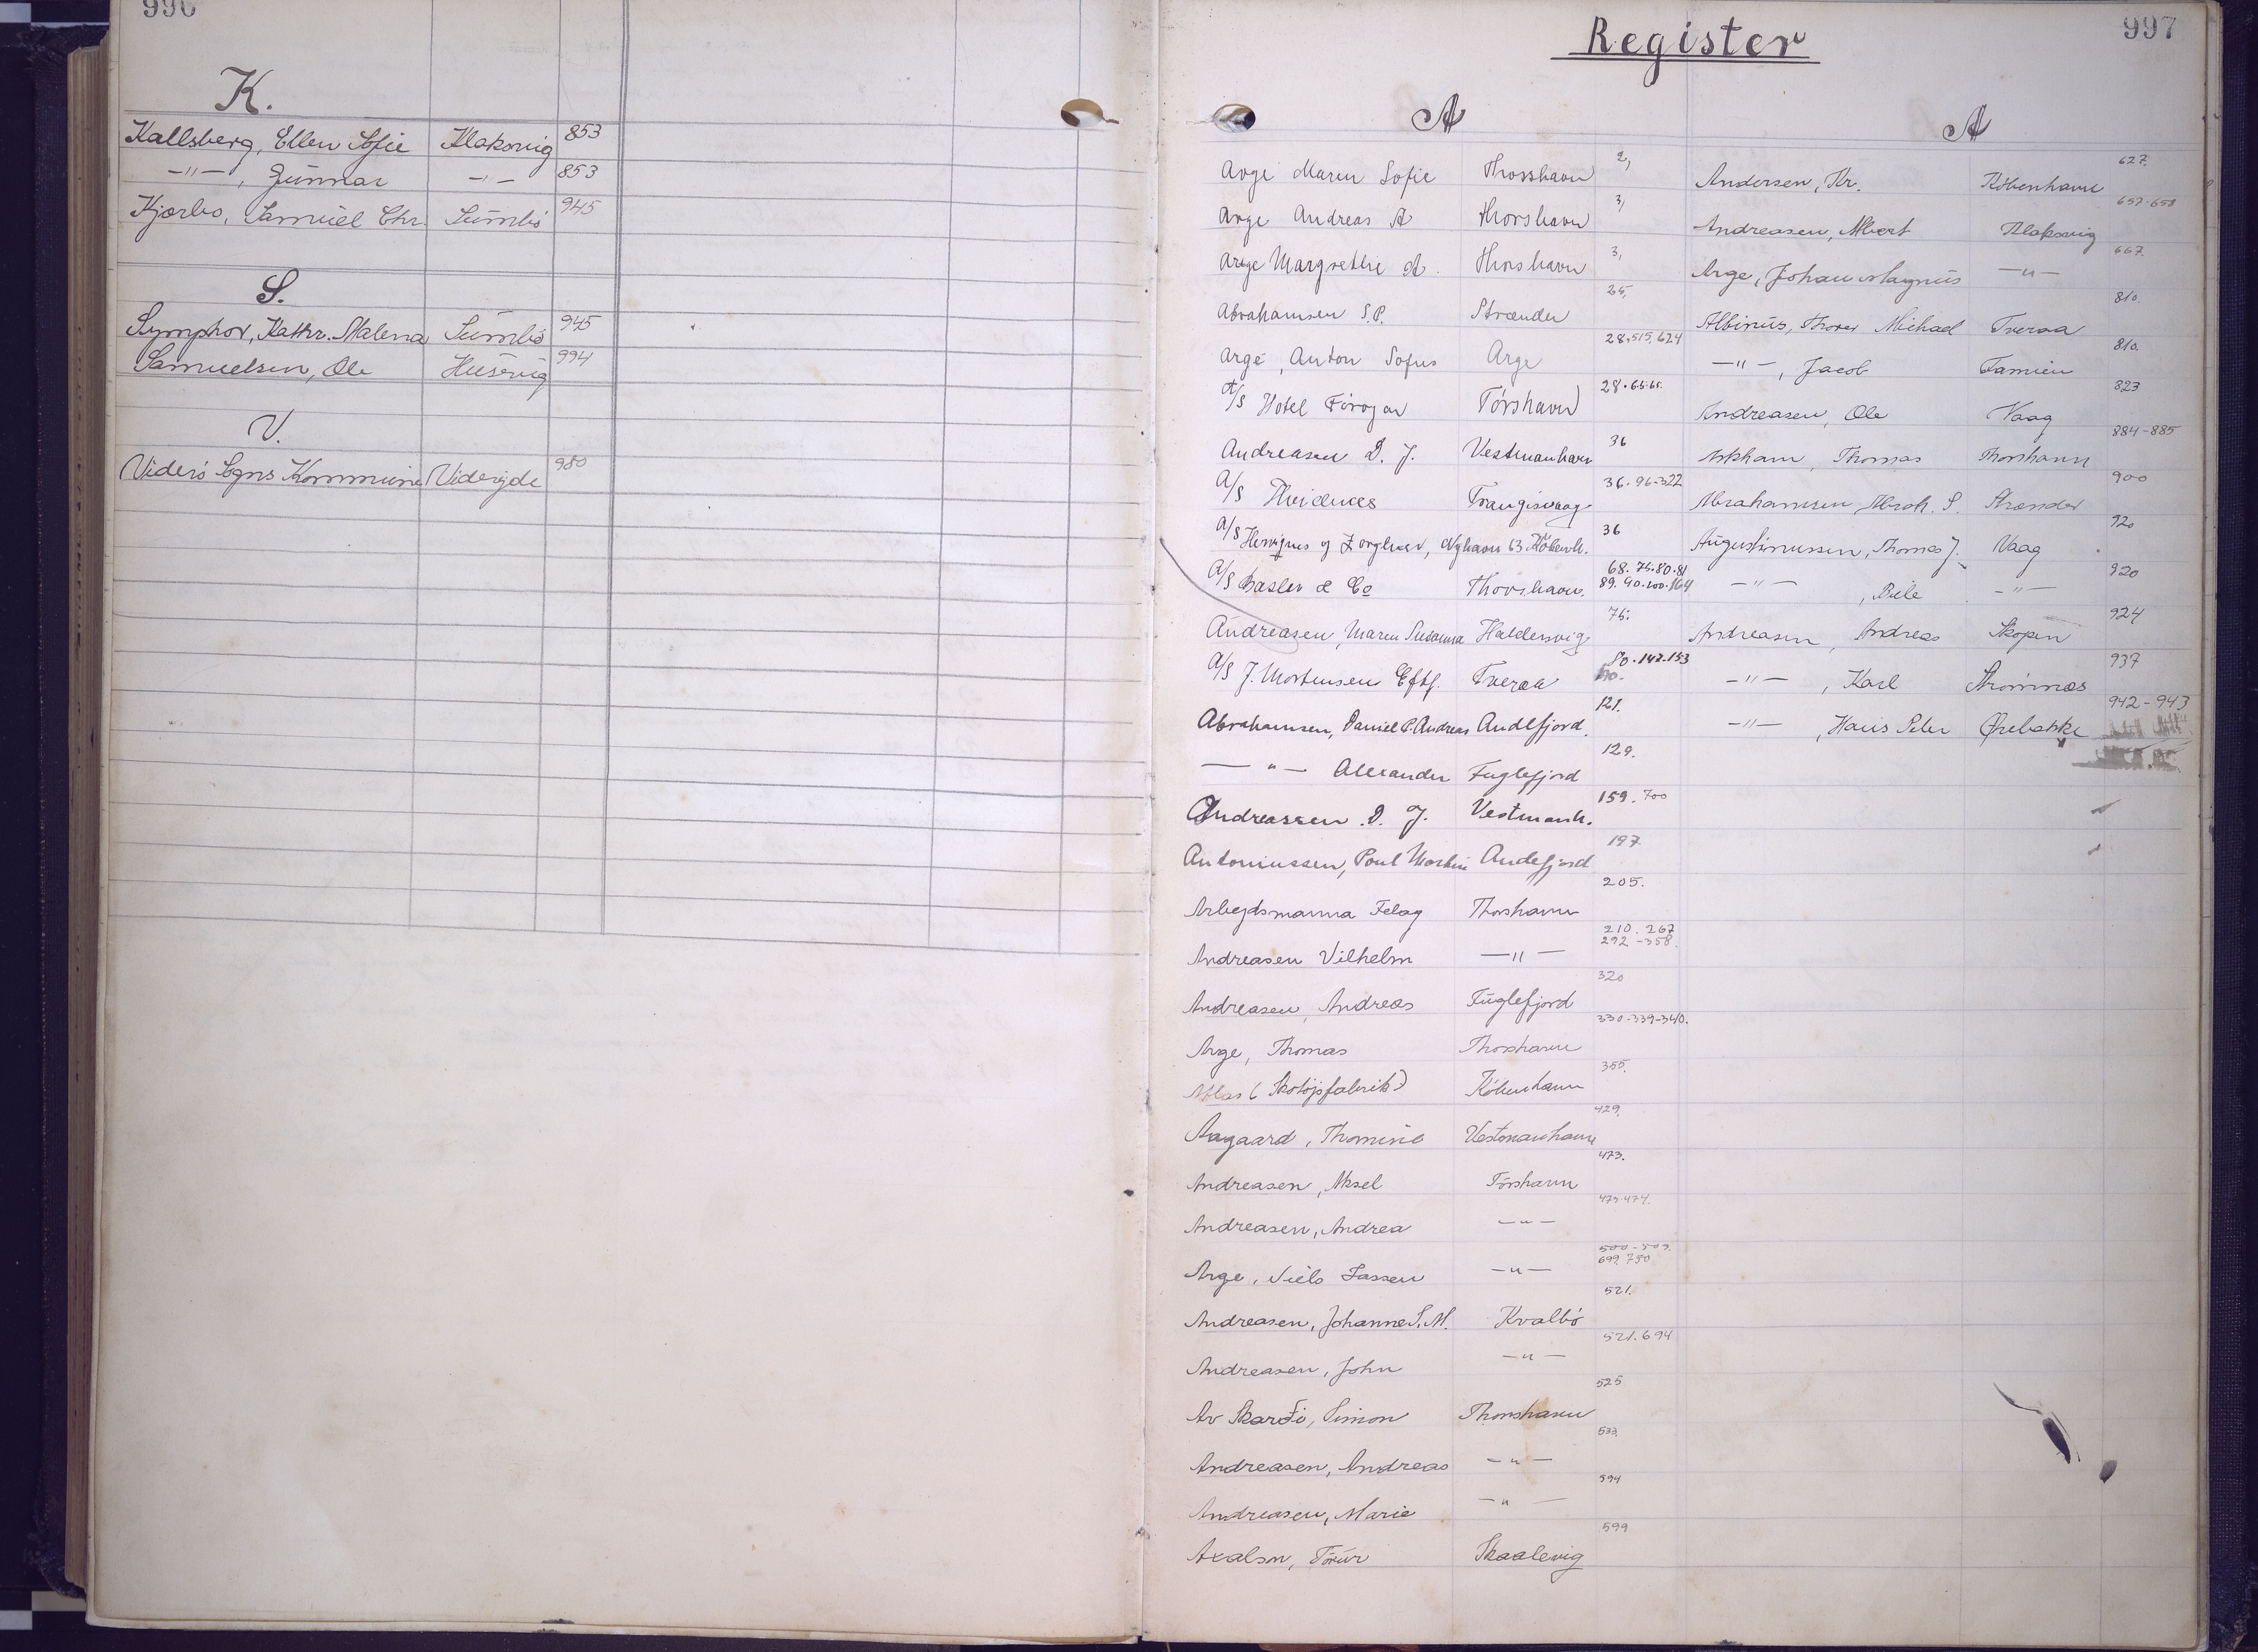 996
K.
Kallsberg, Ellen Sofie Klaksvig 853
-"-, Gunnar -"- 853
Kjærbo, Samuel Chr. Sumbö 945
S.
Symphor, Kathr. Malena Sumbö 945
Samuelsen, Ole Husevig 994
V.
Viderö Sogns Kommune Viderejde 980
997
Register
A
Arge Maren Sofie Thorshavn 2,
Arge Andreas A Thorshavn 3,
Arge Margrethe A. Thorshavn 3,
Abrahamsen S.P. Strænder 25,
Arge, Anton Sofus Arge 28.515.624
A/S Hotel Föroyar Tórshavn 28.65.
Andreasen D. J. Vestmanhavn 36
A/S Trangisvaag 36.96-322
A/S og Nyhavn 63 Köbenh. 36
A/S Basler & Co Thorshavn. 68.75.80.81 89.90.100.164
Andreasen, Maren Susanna Haldersvig 75.
A/S J. Mortensen Eftf. Tveraa 80.142.153
Abrahamsen, Daniel P. Andreas Andefjord. 121.
— " — Alexander Fuglefjord 129.
Andreassen D. J. Vestmanh. 159. 700
Antoniussen, Poul Martin Andefjord 197
Arbejdsmanna Felag Thorshavn 205.
Andreasen Vilhelm —"— 210. 267 292-358.
Andreasen, Andreas Fuglefjord 320
Arge, Thomas Thorshavn 330-339-340.
Atlas (Skotöjsfabrik) Köbenhavn 355.
Aagaard, Thomine Vestmanhavn 429.
Andreasen, Aksel Tórshavn 473.
Andreasen, Andrea -"- 473.474.
Arge, Niels Lassen —"— 500-509. 699.750
Andreasen, Johanne S. M. Kvalbö 521.
Andreasen, John —"— 521.694
Av Skarði, Simon Thorshavn 525
Andreasen, Andreas —"— 533.
Andreasen, Marie —"— 594
Axalson, Tórur Skaalevig 599
A
Andersen, Kr. Köbenhavn 627.
Andreasen, Albert Klaksvig 657-658
Arge, Johan Magnus —"— 667.
Albinus, Michael Tveraa 810.
—"—, Jacob Famien 810.
Andreasen, Ole Vaag 823
Askham, Thomas Thorshavn 884-885
Abrahamsen, Abrah. S. Strænder 900
Augustinussen, Thomas J. Vaag 920
—"—, Pele —"— 920
Andreasen, Andreas Skopen 924
—"—, Karl Strömnæs 937
—"—, Hans Peter Örebakke 942-943